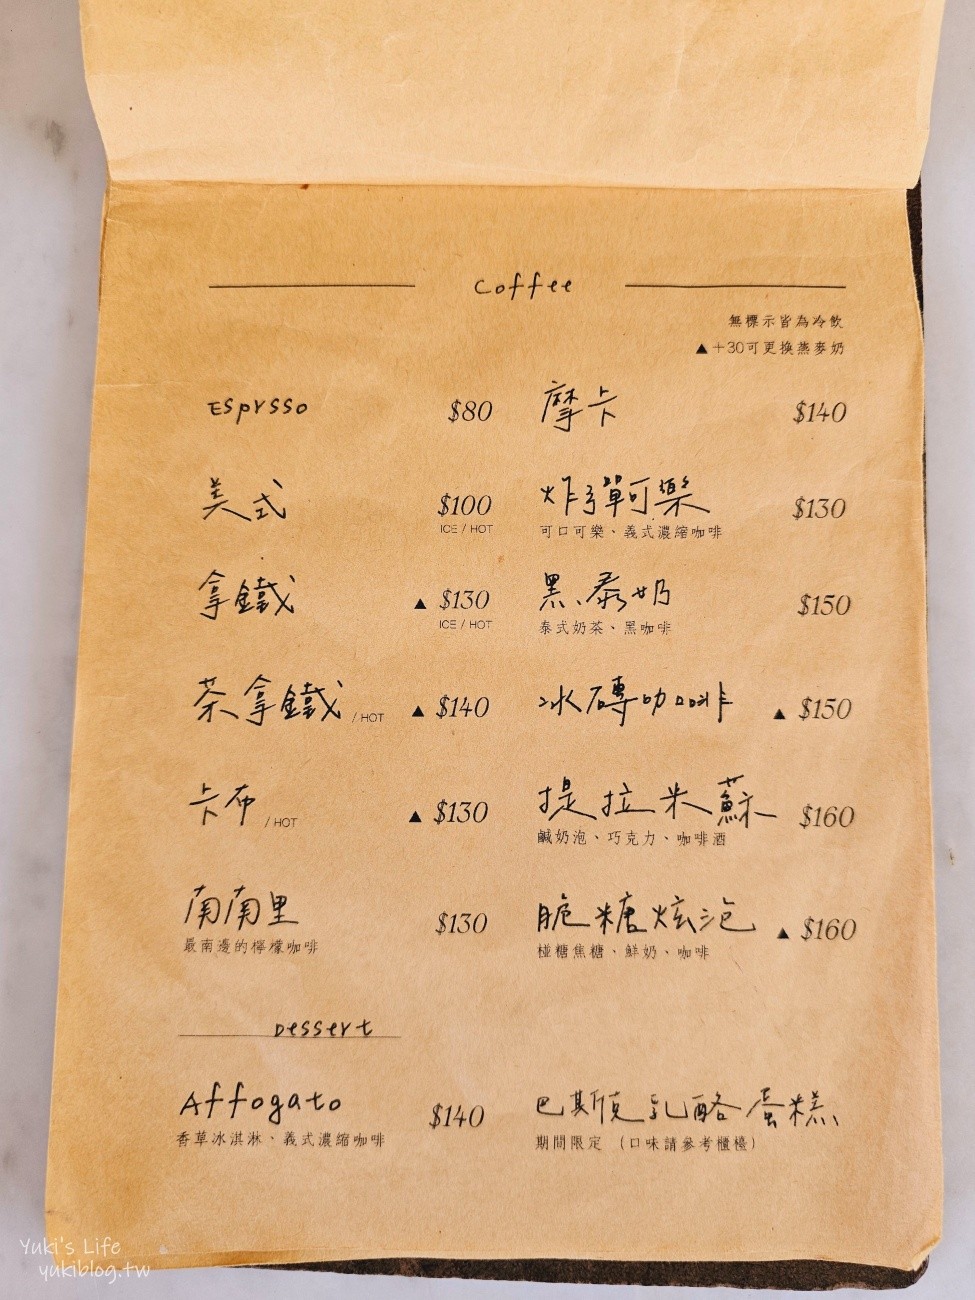 Coffee
無標示皆為冷飲
▲+30可更換燕麥奶
Esprsso $80
美式 $100
ICE / HOT
拿鐵 ▲ $130
ICE / HOT
茶拿鐵 / HOT ▲ $140
卡布 / HOT ▲ $130
南南里 $130
最南邊的檸檬咖啡
摩卡 $140
炸彈可樂 $130
可口可樂、義式濃縮咖啡
黑、泰奶 $150
泰式奶茶、黑咖啡
冰磚咖啡 ▲ $150
提拉米蘇 $160
鹹奶泡、巧克力、咖啡酒
脆糖炫泡 ▲ $160
椪糖焦糖、鮮奶、咖啡
Dessert
Affogato $140
香草冰淇淋、義式濃縮咖啡
巴斯克乳酪蛋糕
期間限定 （口味請參考櫃檯）
Yuki's Life
yukiblog.tw